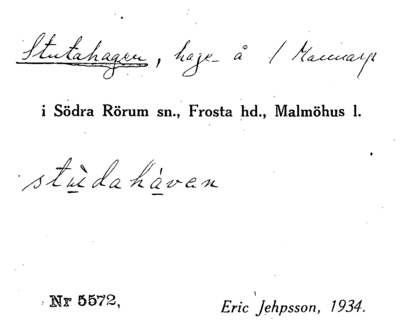 Stutahagen, hage å 1 Mannarp
i Södra Rörum sn., Frosta hd., Malmöhus l.
stùdahàven
Nr 5572,
Eric Jehpsson, 1934.